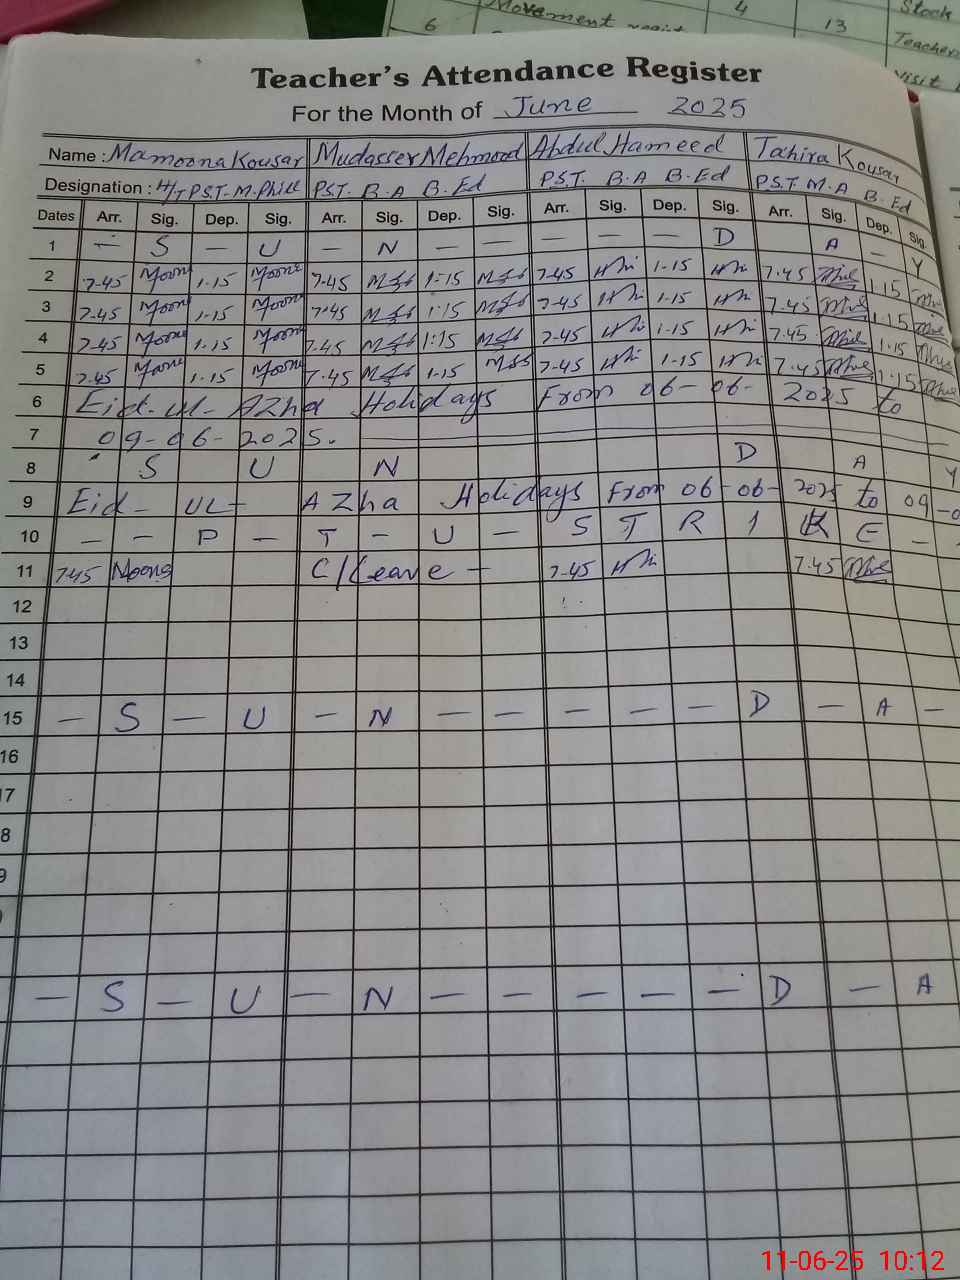 Movement
6 4 13 Stock
Teachers
Visit
Teacher's Attendance Register
For the Month of June 2025
Name : Mamoona Kousar Mudasser Mehmood Abdul Hameed Tahira Kousar
Designation : H/T P.S.T. M.Phill P.S.T. B.A B.Ed P.S.T. B.A B.Ed P.S.T M.A B.Ed
Dates Arr. Sig. Dep. Sig. Arr. Sig. Dep. Sig. Arr. Sig. Dep. Sig. Arr. Sig. Dep. Sig.
1 — S — U — N — — — — — D A — Y
2 7-45 Moona 1-15 Moona 7-45 1-15 7-45 1-15 7-45 1-15
3 7-45 Moona 1-15 Moona 7-45 1-15 7-45 1-15 7-45 1-15
4 7-45 Moona 1-15 Moona 7-45 1-15 7-45 1-15 7-45 1-15
5 7-45 Moona 1-15 Moona 7-45 1-15 7-45 1-15 7-45 1-15
6 Eid-ul-AZha Holidays From 06-06-2025 to
7 09-06-2025.
8 S U N D A Y
9 Eid-UL-AZha Holidays From 06-06-2025 to 09-0
10 — — P — T — U — S T R I K E —
11 7-45 Moona C/Leave — 7-45 7-45
12
13
14
15 — S — U — N — — — — — D — A —
16
17
8
9
— S — U — N — — — — — D — A
11-06-25 10:12